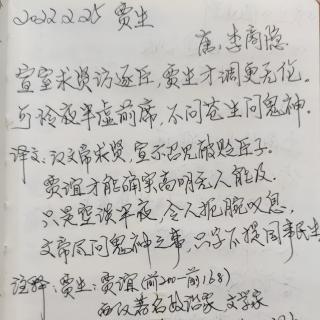 2022.2.25 贾生
唐,李商隐.
宣室求贤访逐臣,贾生才调更无伦.
可怜夜半虚前席,不问苍生问鬼神.
译文:汉文帝求贤,宣示召见被贬臣子.
贾谊才能确实高明无人能及.
只是空谈半夜,令人扼腕叹息,
文帝尽问鬼神之事,只字不提国事民生
注释:贾生:贾谊(前200-前168)
西汉著名政治家 文学家